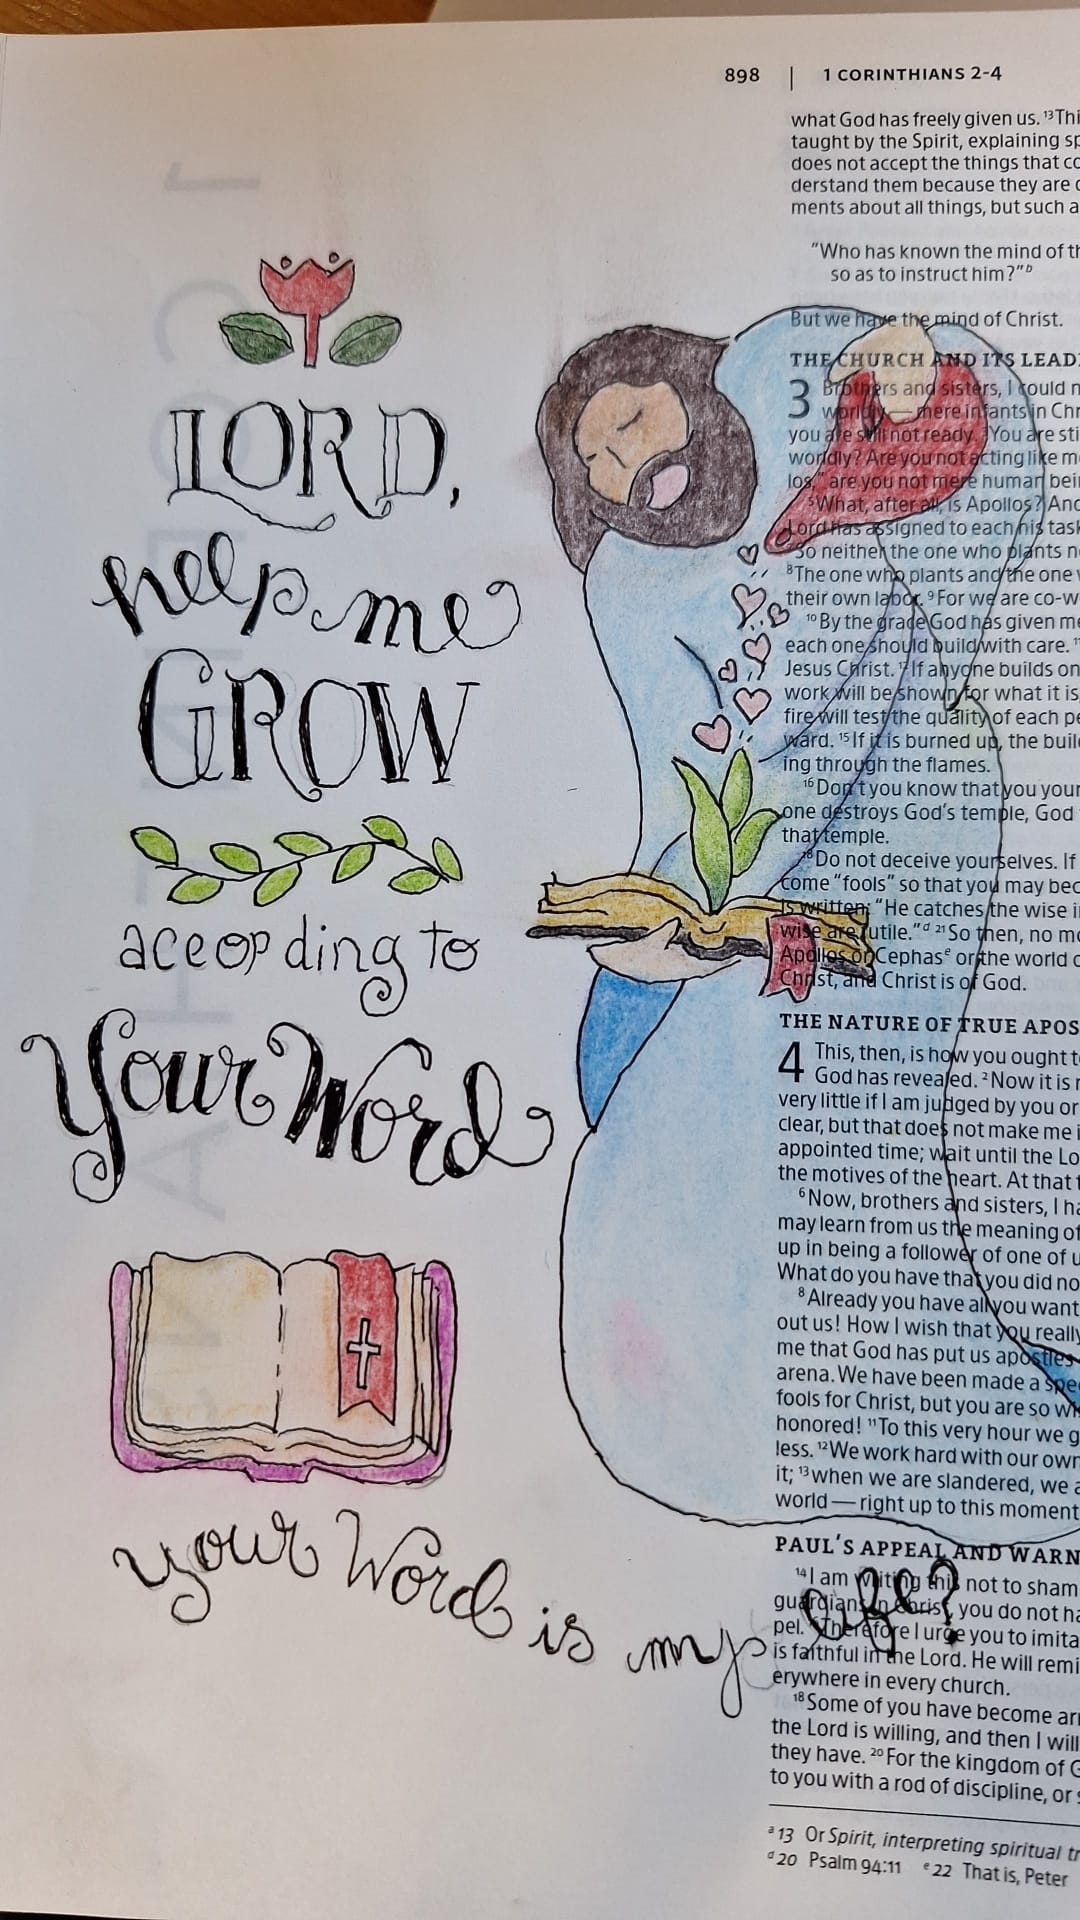 898 | 1 CORINTHIANS 2-4
what God has freely given us. ¹³Thi
taught by the Spirit, explaining sp
does not accept the things that co
derstand them because they are
ments about all things, but such a
"Who has known the mind of th
so as to instruct him?"ᵇ
But we have the mind of Christ.
THE CHURCH AND ITS LEAD
3 Brothers and sisters, I could n
worldly — mere infants in Chr
you are still not ready. ³You are sti
worldly? Are you not acting like m
los," are you not mere human bein
⁵What, after all, is Apollos? And
Lord has assigned to each his task
So neither the one who plants n
⁸The one who plants and the one
their own labor. ⁹For we are co-w
¹⁰By the grace God has given me
each one should build with care.
Jesus Christ. ¹²If anyone builds on
work will be shown for what it is
fire will test the quality of each pe
ward. ¹⁵If it is burned up, the build
ing through the flames.
¹⁶Don't you know that you your
one destroys God's temple, God
that temple.
¹⁸Do not deceive yourselves. If
come "fools" so that you may bec
is written: "He catches the wise i
wise are futile."ᵈ ²¹So then, no m
Apollos or Cephasᵉ or the world o
Christ, and Christ is of God.
THE NATURE OF TRUE APOS
4 This, then, is how you ought t
God has revealed. ²Now it is r
very little if I am judged by you or
clear, but that does not make me i
appointed time; wait until the Lo
the motives of the heart. At that t
⁶Now, brothers and sisters, I ha
may learn from us the meaning of
up in being a follower of one of u
What do you have that you did no
⁸Already you have all you want
out us! How I wish that you really
me that God has put us apostles
arena. We have been made a spe
fools for Christ, but you are so wi
honored! ¹¹To this very hour we g
less. ¹²We work hard with our own
it; ¹³when we are slandered, we a
world — right up to this moment
PAUL'S APPEAL AND WARN
¹⁴I am writing this not to sham
guardians in Christ, you do not ha
pel. Therefore I urge you to imita
is faithful in the Lord. He will remi
erywhere in every church.
¹⁸Some of you have become arr
the Lord is willing, and then I will
they have. ²⁰For the kingdom of G
to you with a rod of discipline, or s
ᵃ13 Or Spirit, interpreting spiritual tr
ᵈ20 Psalm 94:11 ᵉ22 That is, Peter
LORD,
help me
GROW
according to
Your Word
your Word is my